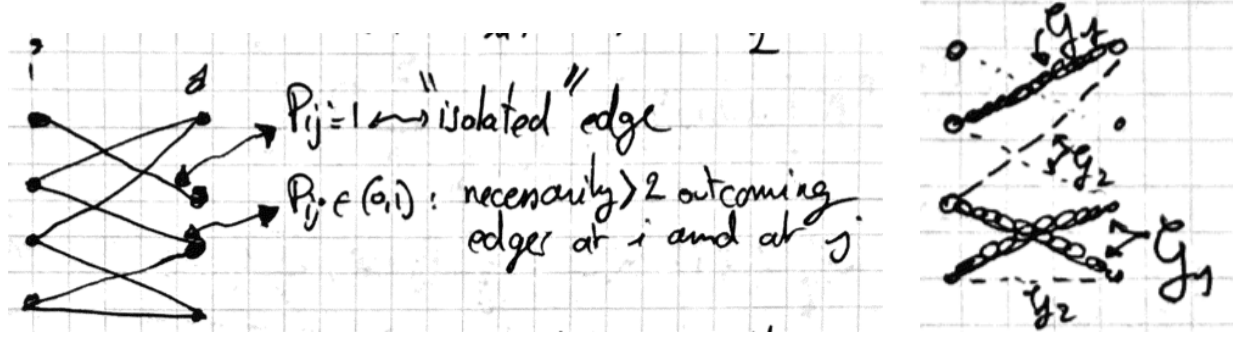 i
j
P_ij = 1 ⟷ "isolated" edge
P_ij ∈ (0,1) : necessarily ⩾ 2 outcoming
edges at i and at j
G_1
G_2
G_1
G_2